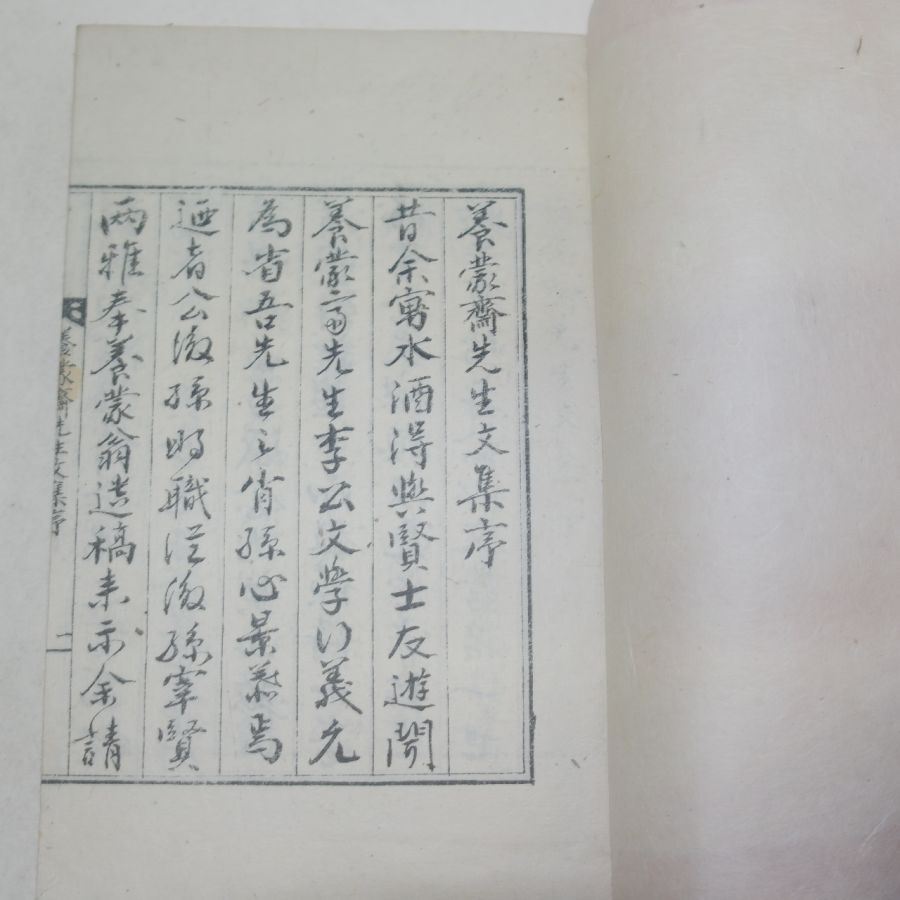 養蒙齋先生文集序
昔余寓水酒得與賢士友遊聞
養蒙齋先生李公文學行義允
為省吾先生之肖孫心景慕焉
迺者公後孫時職從後孫宰賢
兩雅奉養蒙翁遺稿來示余請
養蒙齋先生文集序
一